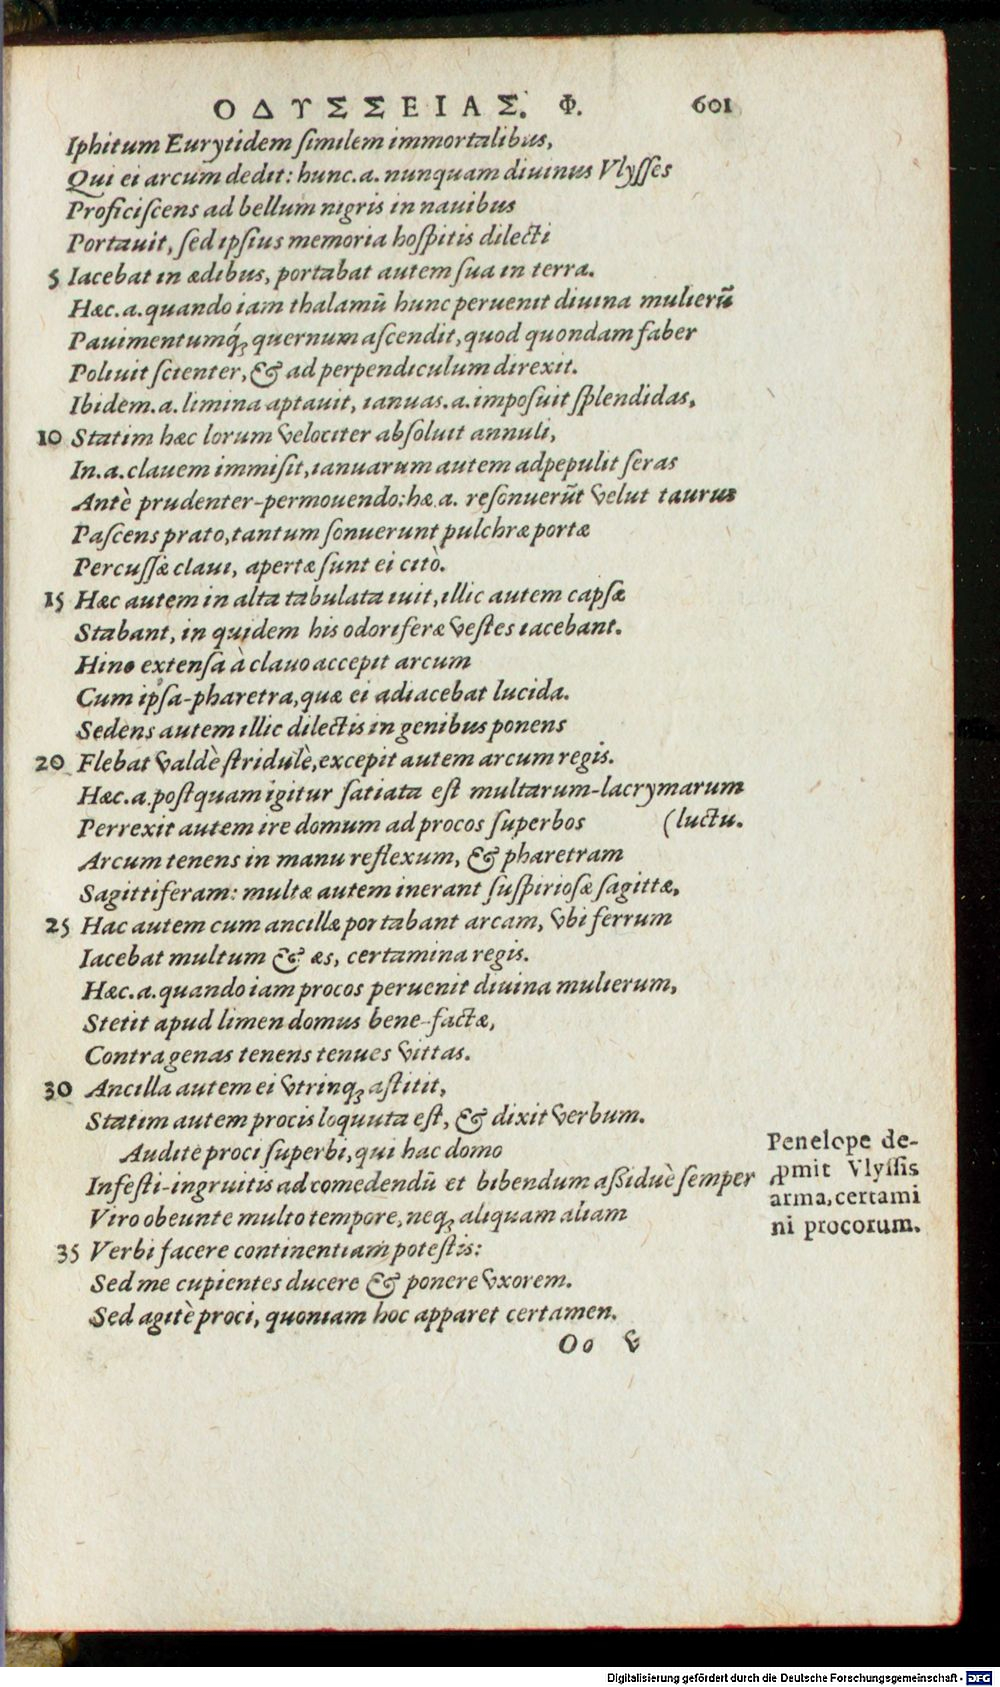 ΟΔΥΣΣΕΙΑΣ. Φ. 601
Iphitum Eurytidem ſimilem immortalibus,
Qui ei arcum dedit: hunc. a. nunquam diuinus Vlyſſes
Proficiſcens ad bellum nigris in nauibus
Portauit, ſed ipſius memoria hoſpitis dilecti
5 Iacebat in ædibus, portabat autem ſua in terra.
Hæc. a. quando iam thalamū hunc peruenit diuina mulierū
Pauimentumq́ꝫ quernum aſcendit, quod quondam faber
Poliuit ſcienter, & ad perpendiculum direxit.
Ibidem. a. limina aptauit, ianuas. a. impoſuit ſplendidas,
10 Statim hæc lorum velociter abſoluit annuli,
In. a. clauem immiſit, ianuarum autem adpepulit ſeras
Antè prudenter-permouendo: hæ. a. reſonuerūt velut taurus
Paſcens prato, tantum ſonuerunt pulchræ portæ
Percuſſæ claui, apertæ ſunt ei citò.
15 Hæc autem in alta tabulata iuit, illic autem capſæ
Stabant, in quidem his odoriferæ veſtes iacebant.
Hinc extenſa à clauo accepit arcum
Cum ipſa-pharetra, quæ ei adiacebat lucida.
Sedens autem illic dilectis in genibus ponens
20 Flebat valdè ſtridulè, excepit autem arcum regis.
Hæc. a. poſtquam igitur ſatiata eſt multarum-lacrymarum
Perrexit autem ire domum ad procos ſuperbos (luctu.
Arcum tenens in manu reflexum, & pharetram
Sagittiferam: multæ autem inerant ſuſpirioſæ ſagittæ,
25 Hac autem cum ancillæ portabant arcam, vbi ferrum
Iacebat multum & æs, certamina regis.
Hæc. a. quando iam procos peruenit diuina mulierum,
Stetit apud limen domus bene-factæ,
Contra genas tenens tenues vittas.
30 Ancilla autem ei vtrinqꝫ aſtitit,
Statim autem procis loquuta eſt, & dixit verbum.
Audite proci ſuperbi, qui hac domo
Infeſti-ingruitis ad comedendū et bibendum aſſiduè ſemper
Viro obeunte multo tempore, neqꝫ aliquam aliam
35 Verbi facere continentiam poteſtis:
Sed me cupientes ducere & ponere vxorem.
Sed agitè proci, quoniam hoc apparet certamen.
Oo v
Penelope de-
ꝓmit Vlyſſis
arma, certami
ni procorum.
Digitalisierung gefördert durch die Deutsche Forschungsgemeinschaft - DFG